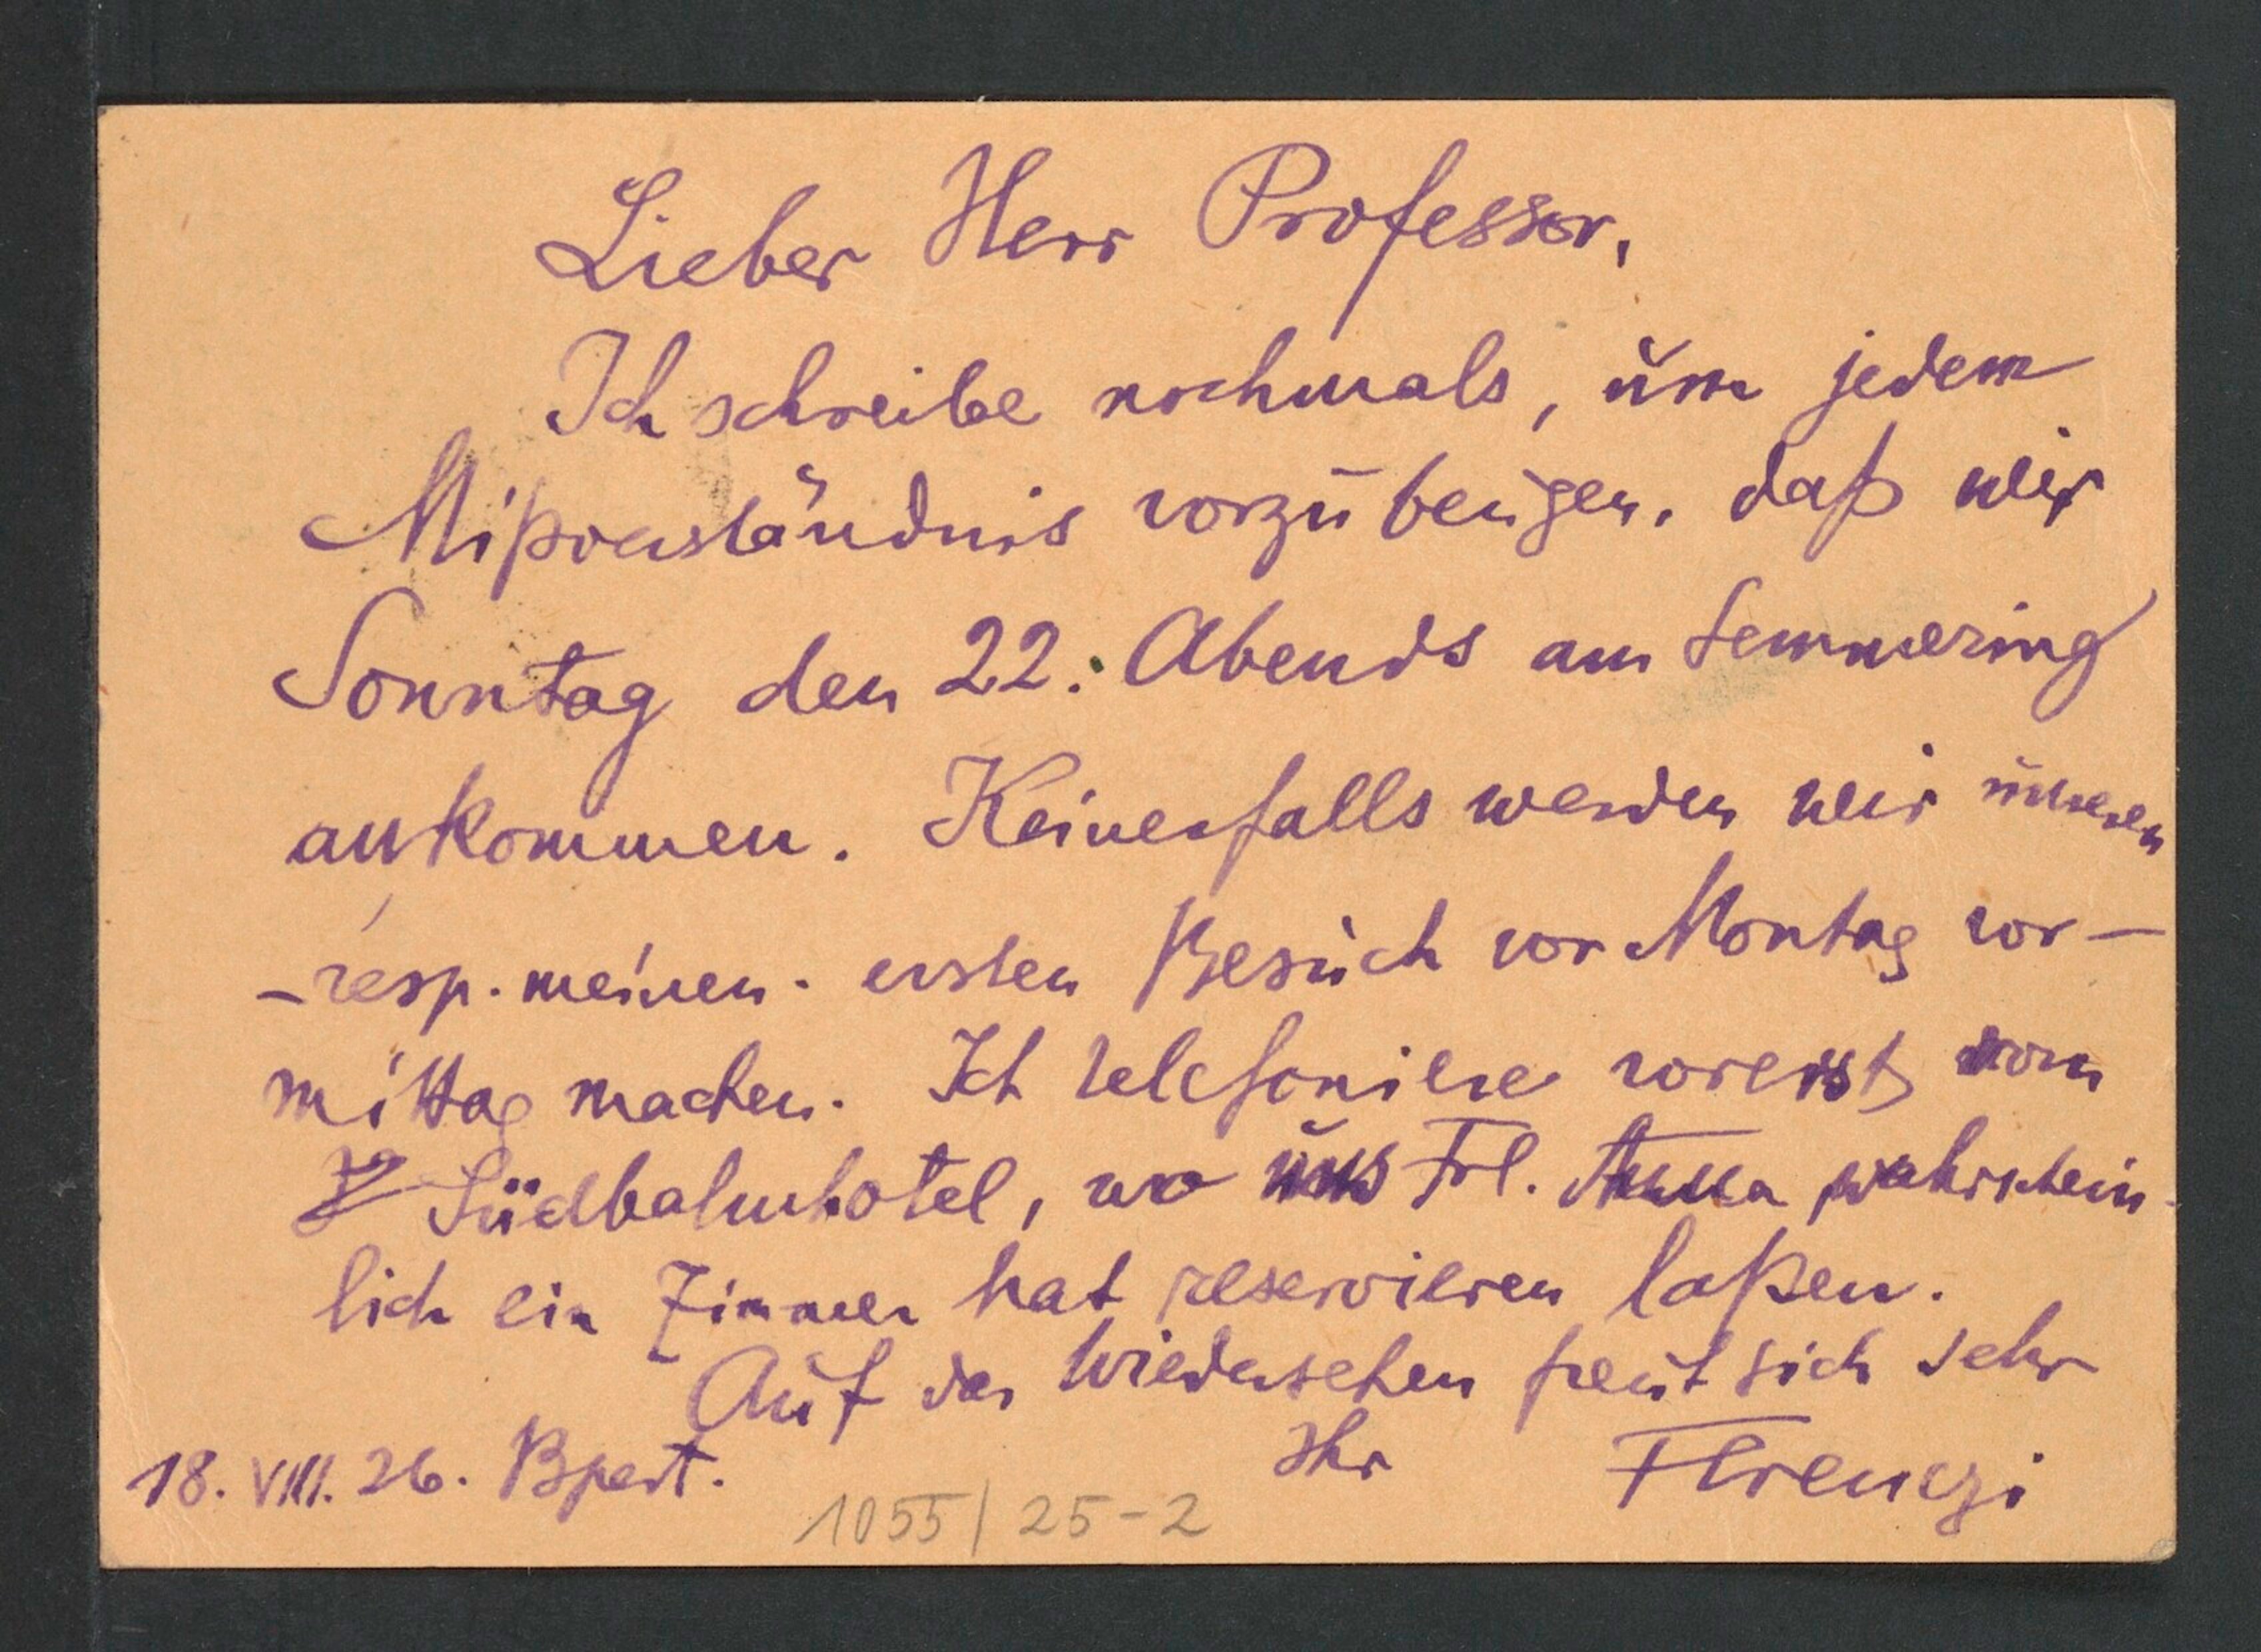 Lieber Herr Professor,
Ich schreibe nochmals, um jedem
Mißverständnis vorzubeugen, daß wir
Sonntag den 22. Abends am Semmering
ankommen. Keinesfalls werden wir unseren
– resp. meinen - ersten Besuch vor Montag vor-
mittag machen. Ich telefoniere vorerst vom
Südbahnhotel, wo uns Frl. Anna wahrschein-
lich ein Zimmer hat reservieren laßen.
Auf das Wiedersehen freut sich sehr
Ihr Ferenczi
18. VIII. 26. Bpest.
1055/25-2